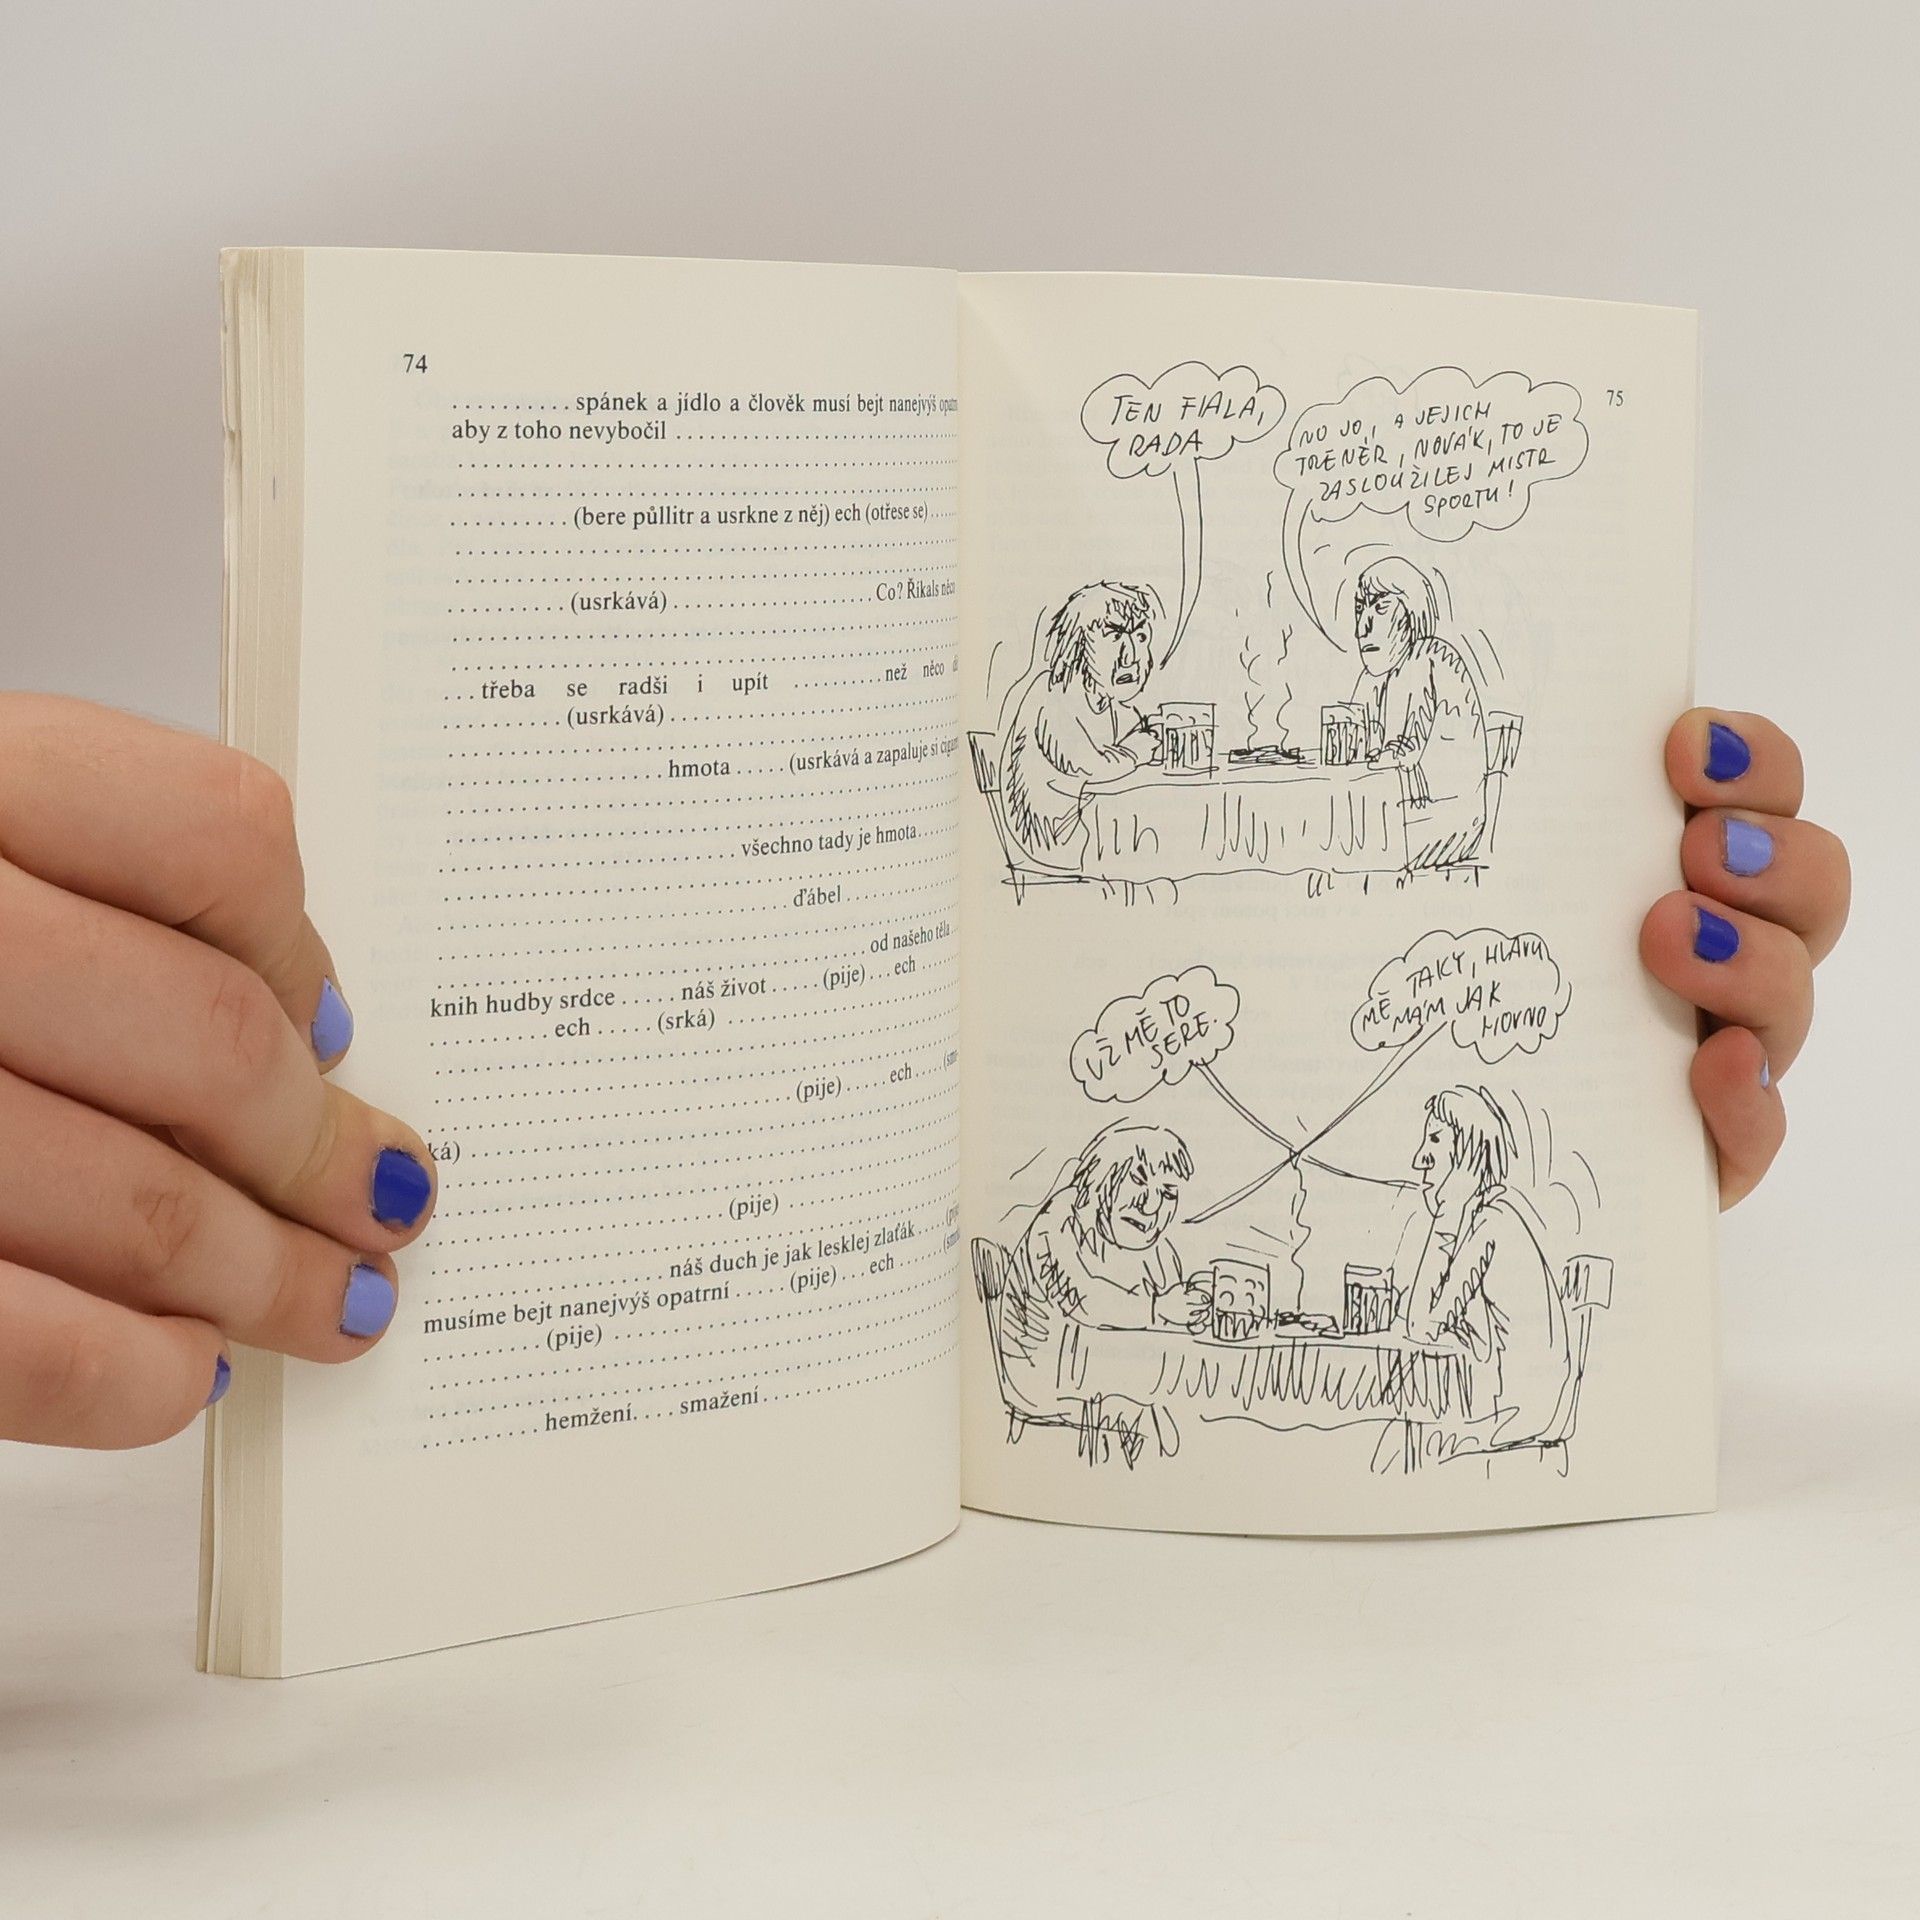 74
. . . . . . . . . . spánek a jídlo a člověk musí bejt nanejvýš
aby z toho nevybočil . . . . . . . . . . . . . . . . . . . . . . . . . . . .
. . . . . . . . . . . . . . . . . . . . . . . . . . . . . . . . . . . . . . . . . . . .
. . . . . . . . . . . . . . . . . . . . . . . . . . . . . . . . . . . . . . . . . . . .
. . . . . . . . . . (bere půllitr a usrkne z něj) ech (otřese se) . . . . . .
. . . . . . . . . . . . . . . . . . . . . . . . . . . . . . . . . . . . . . . . . . . .
. . . . . . . . . . . . . . . . . . . . . . . . . . . . . . . . . . . . . . . . . . . .
. . . . . . . . . . (usrkává) . . . . . . . . . . . . . . . . . . . . Co? Říkals něco
. . . . . . . . . . . . . . . . . . . . . . . . . . . . . . . . . . . . . . . . . . . .
. . . . . . . . . . . . . . . . . . . . . . . . . . . . . . . . . . . . . . . . . . . .
. . . třeba se radši i upít . . . . . . . . . . než něco
. . . . . . . . . . (usrkává) . . . . . . . . . . . . . . . . . . . . . . . . . . . .
. . . . . . . . . . . . . . . . . . . . . . . . . . . . . . . . . . . . . . . . . . . .
. . . . . . . . . . . . . . . . . . . . hmota . . . . . (usrkává a zapaluje si
. . . . . . . . . . . . . . . . . . . . . . . . . . . . . . . . . . . . . . . . . . . .
. . . . . . . . . . . . . . . . . . . . . . . . . . . . . . . . . . . . . . . . . . . .
. . . . . . . . . . . . . . . . . . . . . . . . . . . všechno tady je hmota . . . . . .
. . . . . . . . . . . . . . . . . . . . . . . . . . . . . . . . . . . . . . . . . . . .
. . . . . . . . . . . . . . . . . . . . . . . . . . . . . . . . ďábel . . . . . . . . . .
. . . . . . . . . . . . . . . . . . . . . . . . . . . . . . . . . . . . . . . . . . . .
. . . . . . . . . . . . . . . . . . . . . . . . . . . . . . . . . . . . . . od našeho těla . .
knih hudby srdce . . . . . náš život . . . . . (pije) . . . ech . . . . . .
. . . . . . . . . . ech . . . . . (srká) . . . . . . . . . . . . . . . . . . . . . . .
. . . . . . . . . . . . . . . . . . . . . . . . . . . . . . . . . . . . . . . . . . . .
. . . . . . . . . . . . . . . . . . . . . . . . . . . . . . . . (pije) . . . . . ech . . . . .
. . . . . . . . . . . . . . . . . . . . . . . . . . . . . . . . . . . . . . . . . . . .
ká) . . . . . . . . . . . . . . . . . . . . . . . . . . . . . . . . . . . . . . . . . .
. . . . . . . . . . . . . . . . . . . . . . . . . . . . . . . . . . . . . . . . . . . .
. . . . . . . . . . . . . . . . . . . . . . . . . . (pije) . . . . . . . . . . . . . . . .
. . . . . . . . . . . . . . . . . . . . . . . . . . . . . . . . . . . . . . . . . . . .
. . . . . . . . . . . . . . . . . . . . . náš duch je jak lesklej zlaťák . . . . .
musíme bejt nanejvýš opatrní . . . . . (pije) . . . ech . . . . . .
. . . . . . . . . . (pije) . . . . . . . . . . . . . . . . . . . . . . . . . . . . . .
. . . . . . . . . . . . . . . . . . . . . . . . . . . . . . . . . . . . . . . . . . . .
. . . . . . . . . . . . . . . . . . . . . . . . . . . . . . . . . . . . . . . . . . . .
. . . . . . . . . . hemžení. . . . smažení . . . . . . . . . . . . . . . . . . . .
75
TEN FIALA,
RADA
NO JO, A JEJICH
TRENÉR, NOVÁK, TO JE
ZASLOUŽILEJ MISTR
SPORTU!
UŽ MĚ TO
SERE.
MĚ TAKY, HLAVU
MÁM JAK
HOVNO